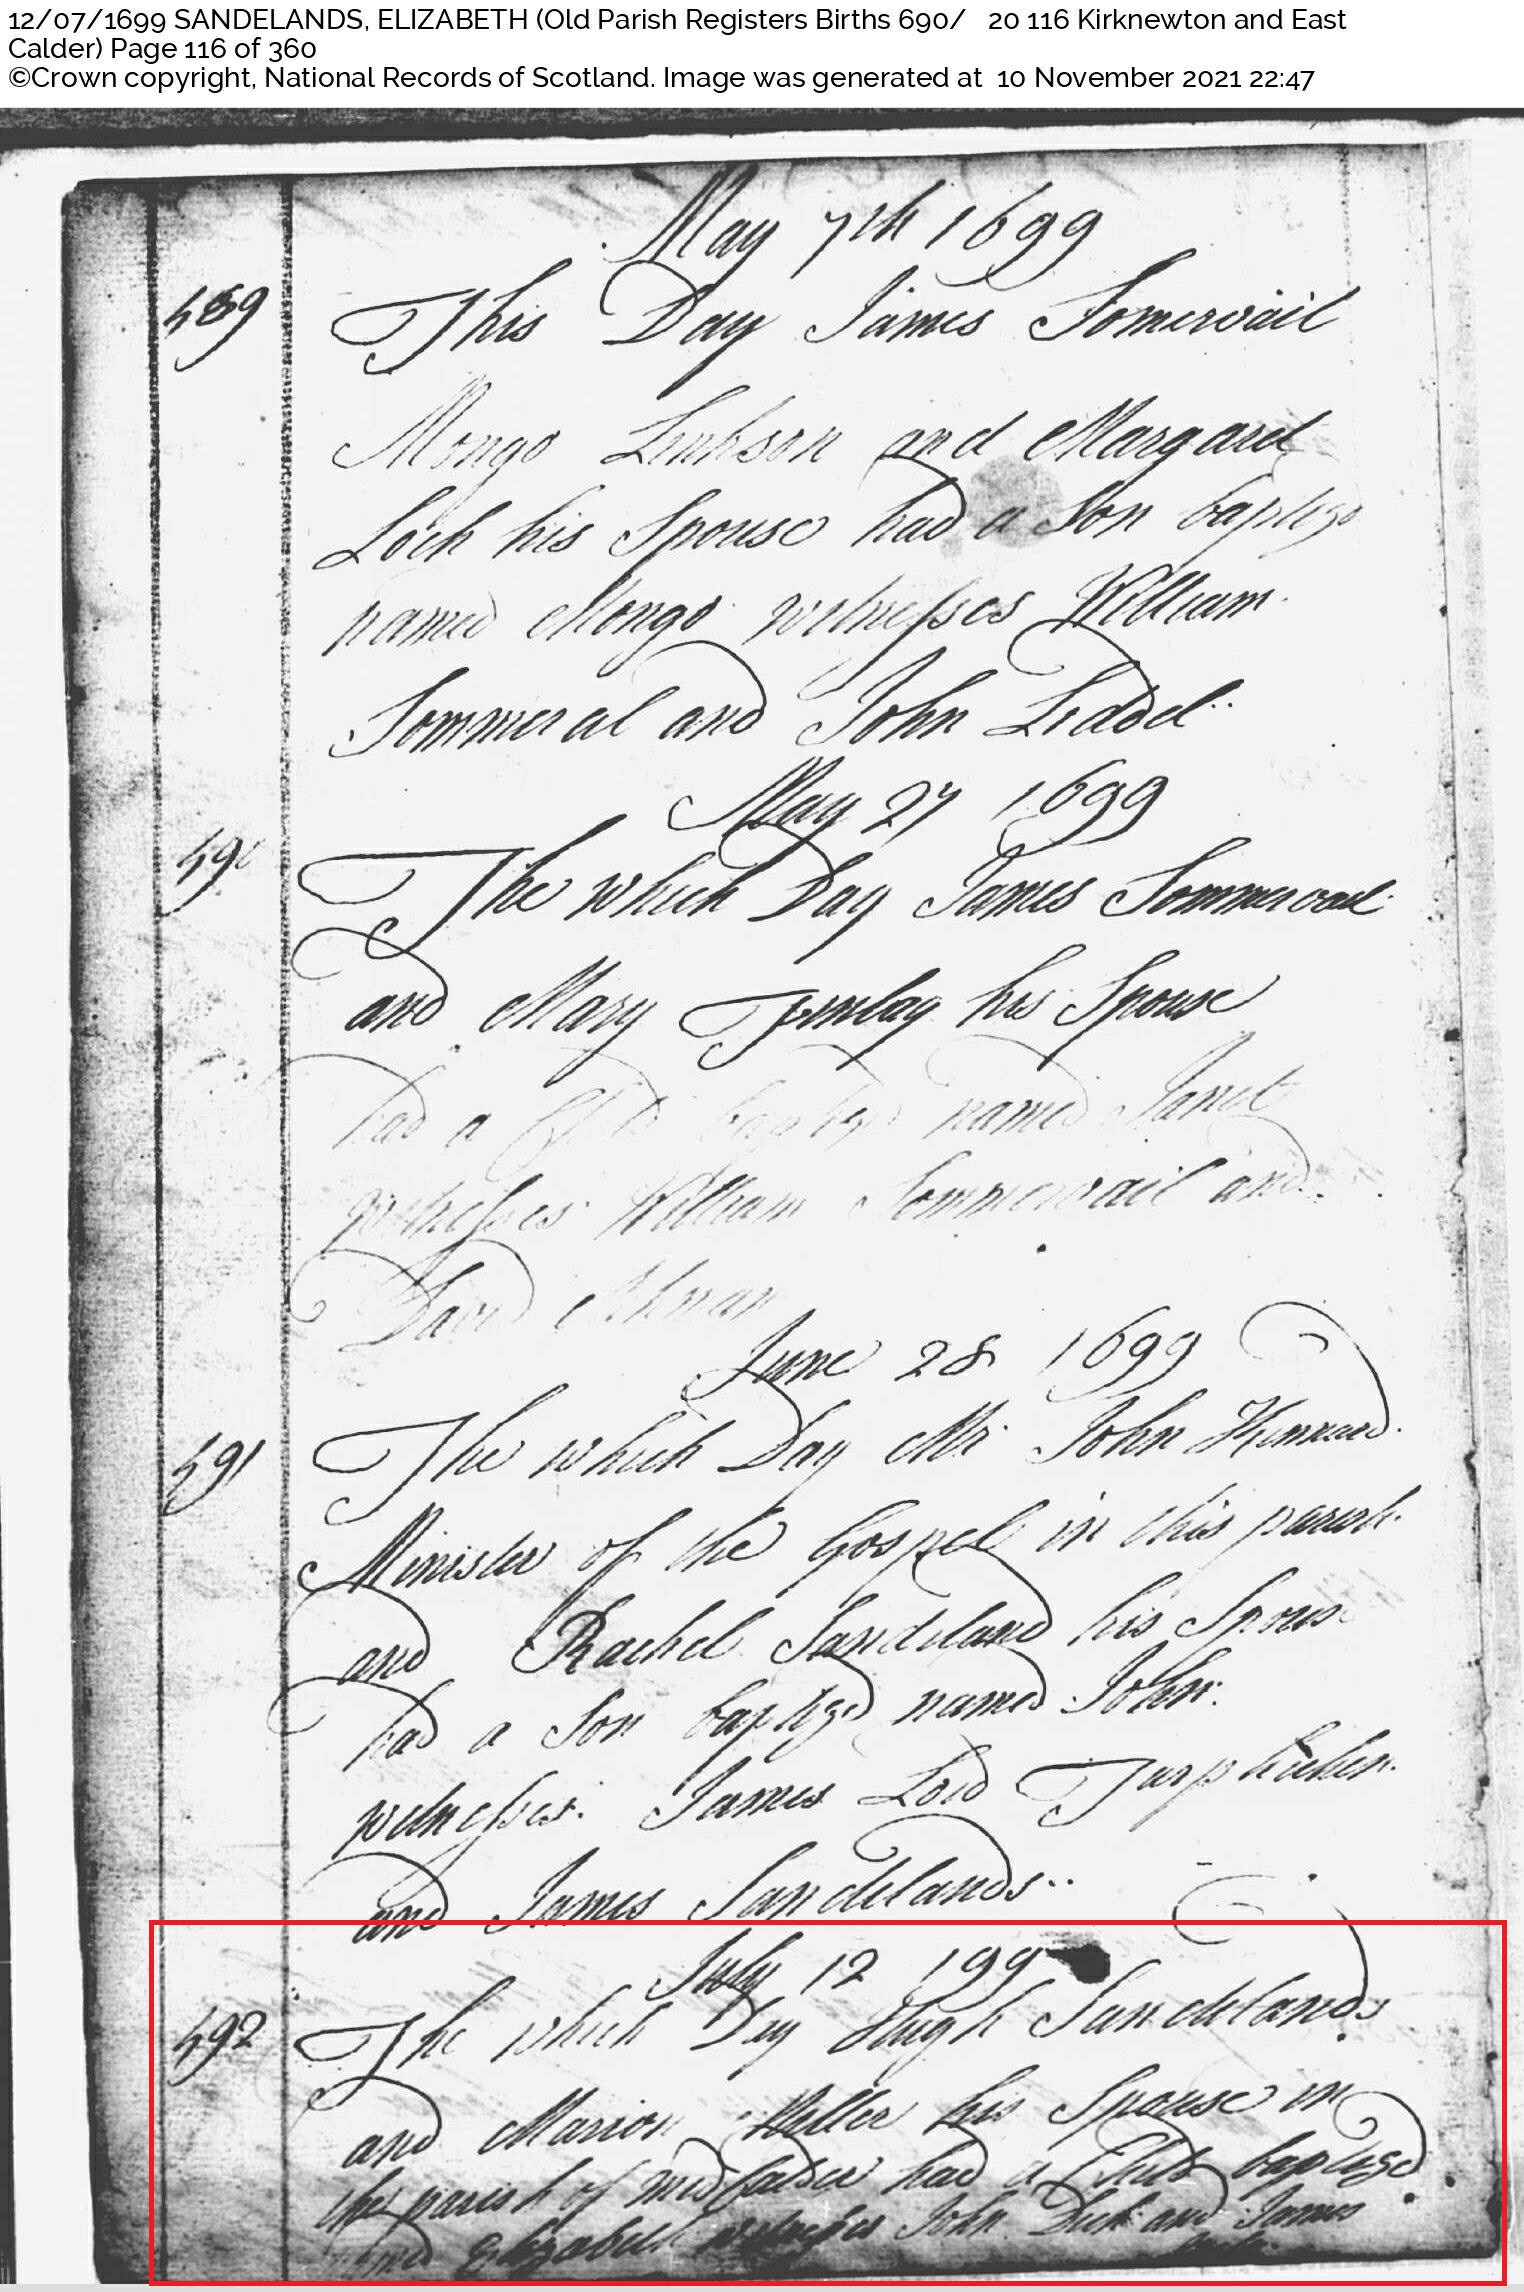 12/07/1699 SANDELANDS, ELIZABETH (Old Parish Registers Births 690/ 20 116 Kirknewton and East
Calder) Page 116 of 360
©Crown copyright, National Records of Scotland. Image was generated at 10 November 2021 22:47
May 7th 1699
489
This Day James Somervail
Mongo and Margaret
Loch his Spouse had a Son baptiz
named Mongo witnesses William
Sommeral and John Liddel
May 27 1699
49
The which Day James Sommervail
and Mary his Spouse
had a Child baptiz named Janet
witnesses William Sommervail and
David
June 28 1699
491
The which Day Mr John
Minister of the Gospel in this parish
and Rachel Sandeland his Spous
had a Son baptized named John
witnesses James Lord Torphichen
and James Sandelands
July 12 199
492
The which Day Hugh Sandelands
and Marion his Spouse in
the parish of mid Calder had a Child baptised
named Elizabeth witnesses John Dick and James